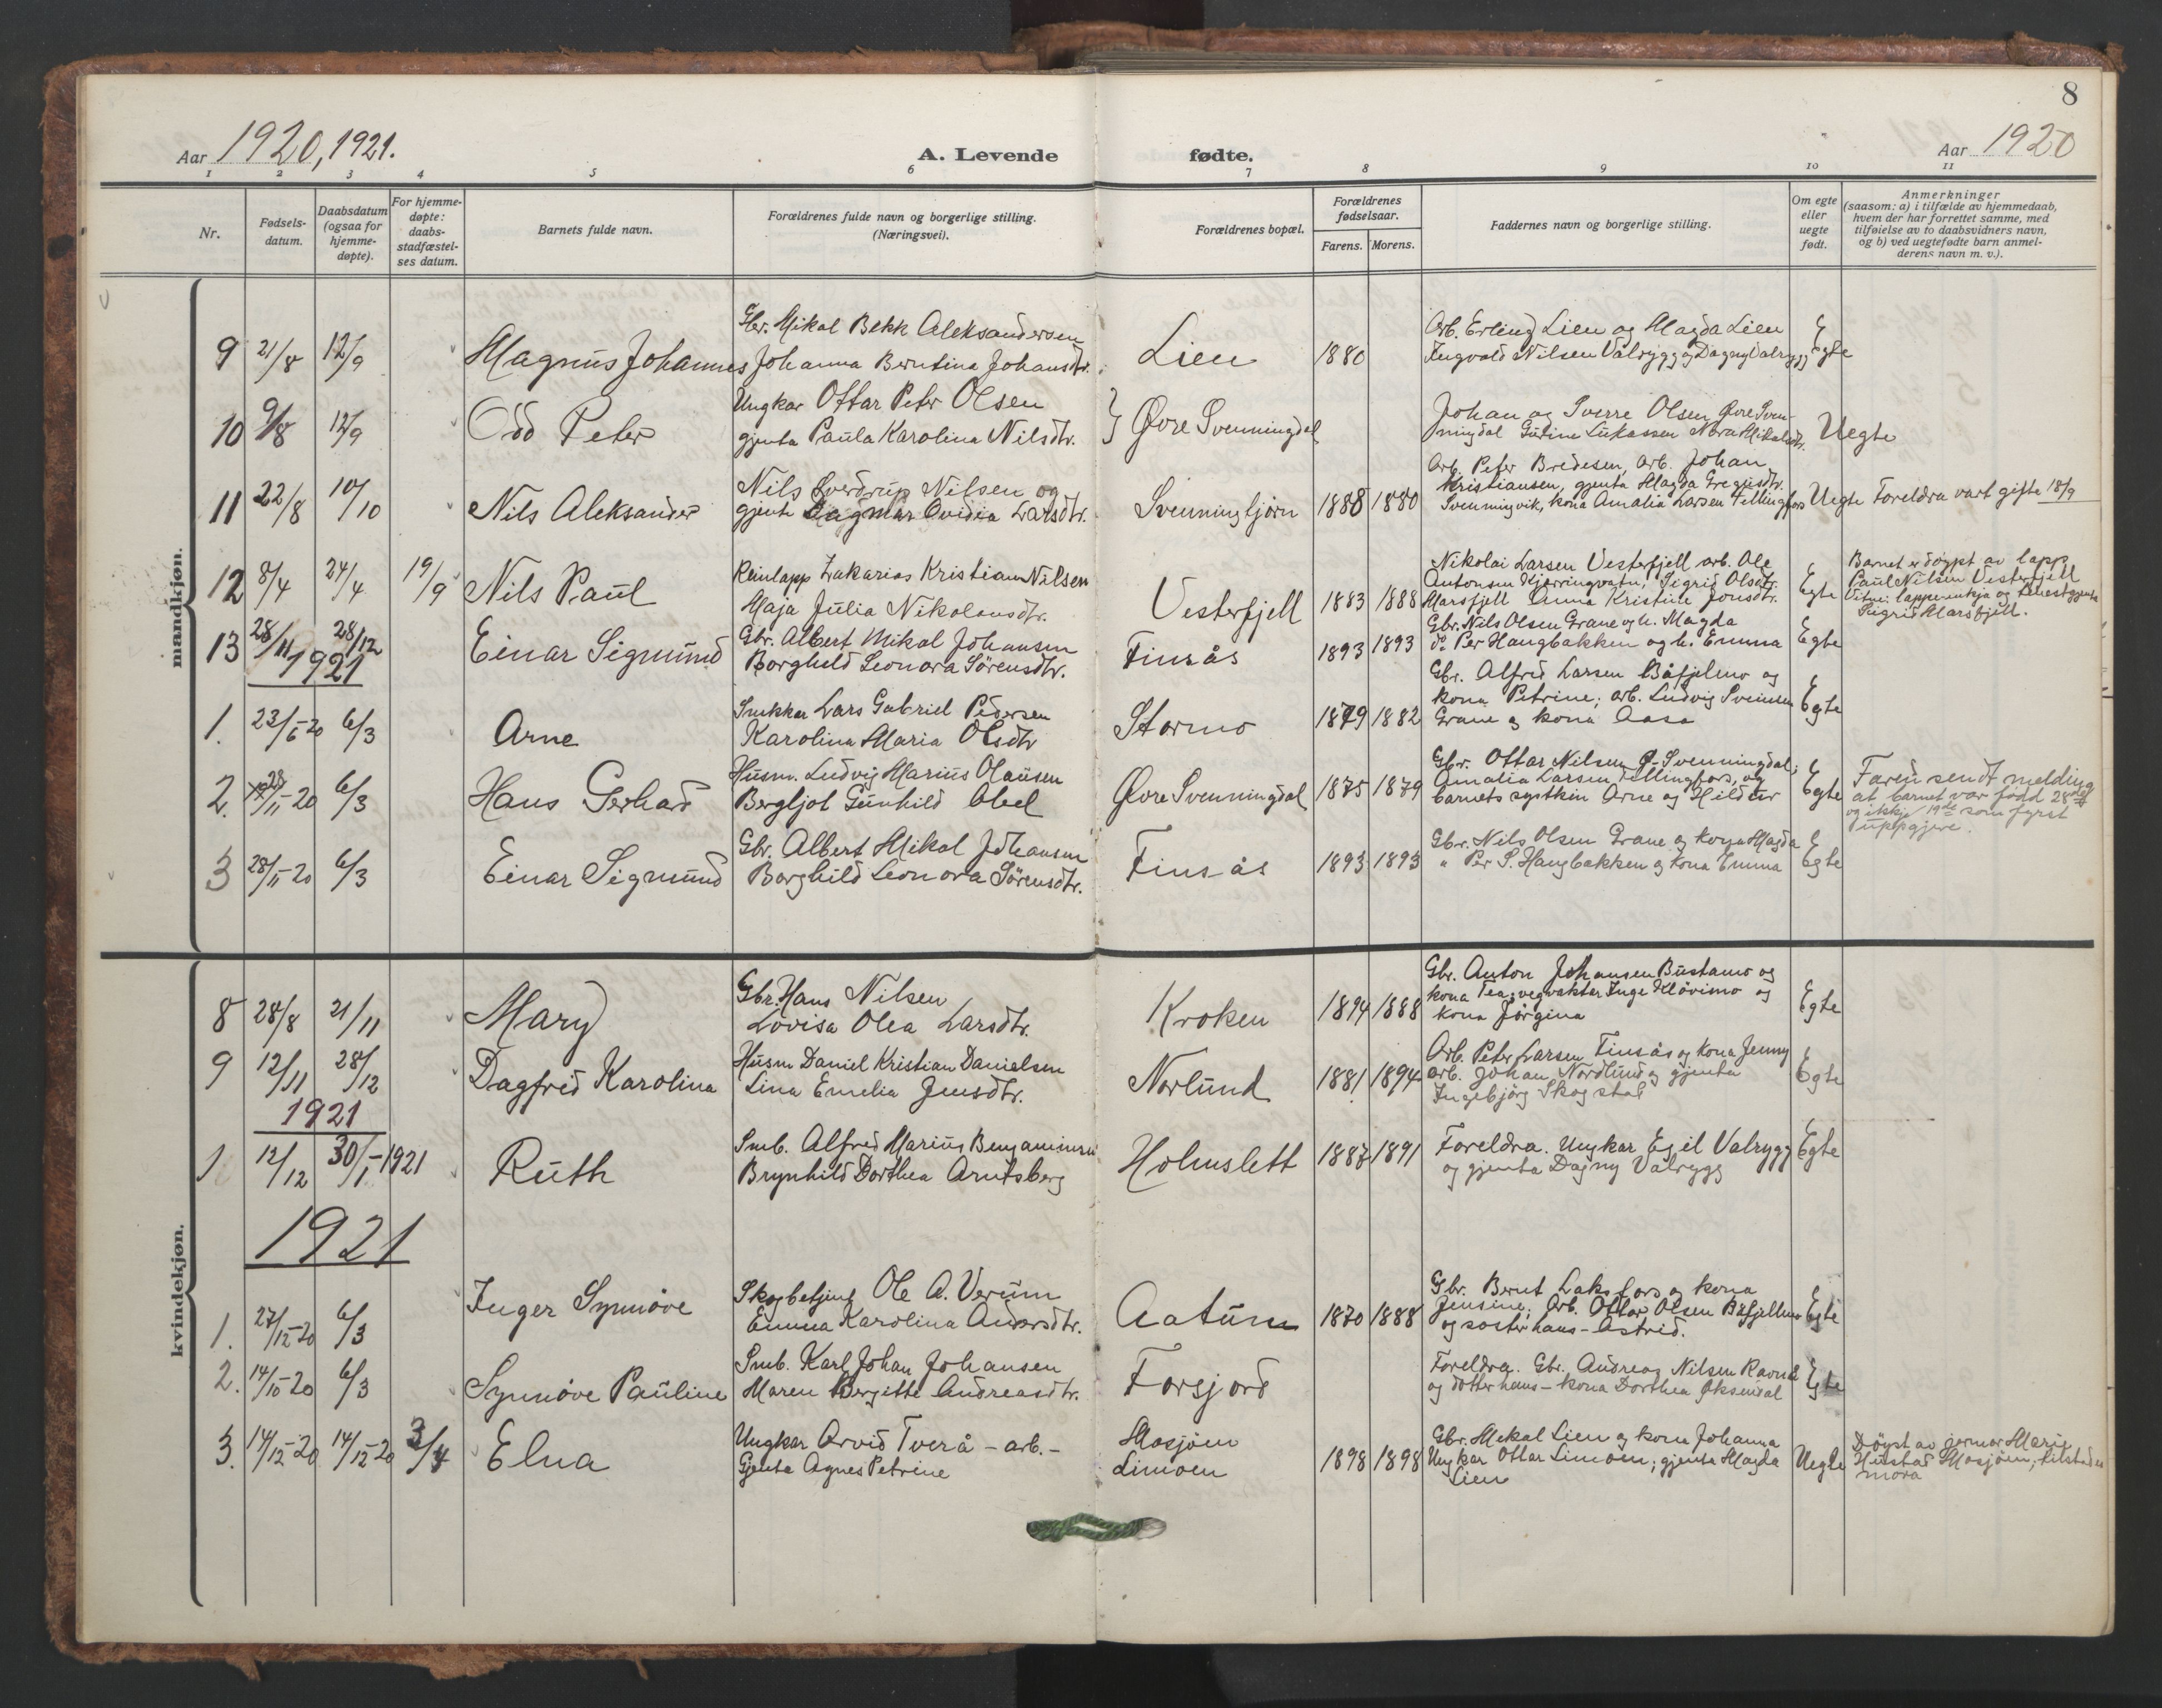 8
Aar 1920, 1921. A. Levende fødte. Aar 1920
1 2 3 4 5 6 7 8 9 10 11
Nr. Fødselsdatum. Daabsdatum (ogsaa for hjemmedøpte). For hjemmedøpte: daabsstadfæstelses datum. Barnets fulde navn. Forældrenes fulde navn og borgerlige stilling. (Næringsvei). Forældrenes bopæl. Forældrenes fødselsaar. Farens. Morens. Faddernes navn og borgerlige stilling. Om egte eller uegte født. Anmerkninger (saasom: a) i tilfælde av hjemmedaab, hvem der har forrettet samme, med tilføielse av to daabsvidners navn, og b) ved uegtefødte barn anmelderens navn m. v.).
mandkjøn.
Gbr. Mikal Bekk Aleksandersen
9 21/8 12/9 Magnus Johannes Johanna Berntina Johansdtr. Lien 1880 Arb. Erling Lien og Magda Lien
Ingvald Nilsen Valrygg og Dagny Valrygg Egte
Ungkar Ottar Peter Olsen
10 9/8 12/9 Odd Peter gjenta Paula Karolina Nilsdtr. } Øvre Svenningdal Johan og Sverre Olsen Øvre Sven-
ningdal Gurine Lukassen Nora Mikalsdtr. Uegte
Nils Sverdrup Nilsen og
11 22/8 10/10 Nils Aleksander gjenta Dagmar Ovidia Larsdtr. Svenningtjørn 1888 1880 Arb. Peter Bredesen, arb. Johan
Kristiansen, gjenta Magda Gregusdtr.
Svenningvik, kona Amalia Larsen Fellingfors Uegte Foreldra vart gifte 18/9
Reinlapp Zakarias Kristian Nilsen
12 8/4 24/4 19/9 Nils Paul Maja Julia Nikolausdtr. Vesterfjell 1883 1888 Nikolai Larsen Vesterfjell arb. Ole
Antonsen Kjerringvatn, Sigrid Olsdtr.
Marsfjell Anna Kristine Jonsdtr. Egte Barnet er døypt av lapp
Paul Nilsen Vesterfjell
Vitni: lappeenkja og
Sigrid Marsfjell.
13 28/11 28/12 Einar Sigmund Gbr. Albert Mikal Johansen
Borghild Leonora Sörensdtr. Finsås 1893 1893 Gbr. Nils Olsen Grane og h. Magda
do Per Haugbakken og h. Emma Egte
1921
1. 23/6-20 6/3 Arne Snikkar Lars Gabriel Pedersen
Karolina Maria Olsdtr Stormo 1879 1882 Gbr. Alfred Larsen Båfjelmo og
kona Petrine; arb. Ludvig Svensen
Grane og kona Aasa Egte
2. 28/11-20 6/3 Hans Gerhard Husm. Ludvig Marius Olausen
Bergljot Gunhild Abel Øvre Svenningdal 1875 1879 Gbr. Ottar Nilsen Ø-Svenningdal;
Amalia Larsen Fellingfors, og
barnets systkin Arne og Hildur Egte Faren sendt melding
at barnet var född 28de
og ikkje 19de som fyrst
uppgjeve.
3 28/11-20 6/3 Einar Sigmund Gbr. Albert Mikal Johansen
Borghild Leonora Sörensdtr. Finsås 1893 1893 Gbr. Nils Olsen Grane og kona Magda
" Per S. Haugbakken og kona Emma Egte
kvindekjøn.
8 28/8 21/11 Mary Gbr. Hans Nilsen
Lovisa Olea Larsdtr. Kroken 1894 1888 Gbr. Anton Johansen Bustamo og
kona Tea; vegvaktar Inge Klövimo og
kona Jörgina Egte
9 12/11 28/12 Dagfrid Karolina Husm Daniel Kristian Danielsen
Lina Emelia Jensdtr. Norlund 1881 1894 Arb. Peter Larsen Finsås og kona Jenny
arb. Johan Nordlund og gjenta
Ingebjörg Skogstad Egte
1921
1 12/12 30/1-1921 Ruth Smb. Alfred Marius Benjaminsen
Brynhild Dorthea Arntsberg Holmslett 1887 1891 Foreldra. Ungkar Egil Valrygg
og gjenta Dagny Valrygg Egte
1921
1. 27/12-20 6/3 Inger Synnöve Skogbetjent Ole A. Verum
Emma Karolina Andersdtr. Aatum 1870 1888 Gbr. Bernt Laksfors og kona
Jensine; Arb. Ottar Olsen Båfjellmo
og soster hans - Astrid. Egte
2. 14/10-20 6/3 Synnöve Pauline Smb. Karl Johan Johansen
Maren Bergitte Andreasdtr. Forsjord Foreldra. Gbr. Andreas Nilsen Ravnå
og dotter hans - kona Dorthea Öksendal Egte
3. 14/12-20 14/12-20 3/4 Elna Ungkar Arvid Tverå - arb. -
Gjenta Agnes Petrine Mosjöen
Limoen 1898 1898 Gbr. Mekal Lien og kona Johanna
Ungkar Ottar Limoen; gjenta Magda
Lien Uegte Döypt av jormor Marie
Hustad Mosjöen; tilstades
mora